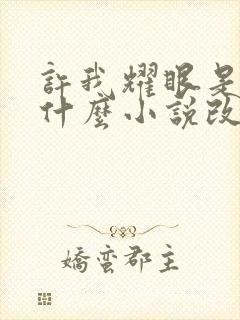 許我耀眼是
什麼小說改
嬌蠻郡主